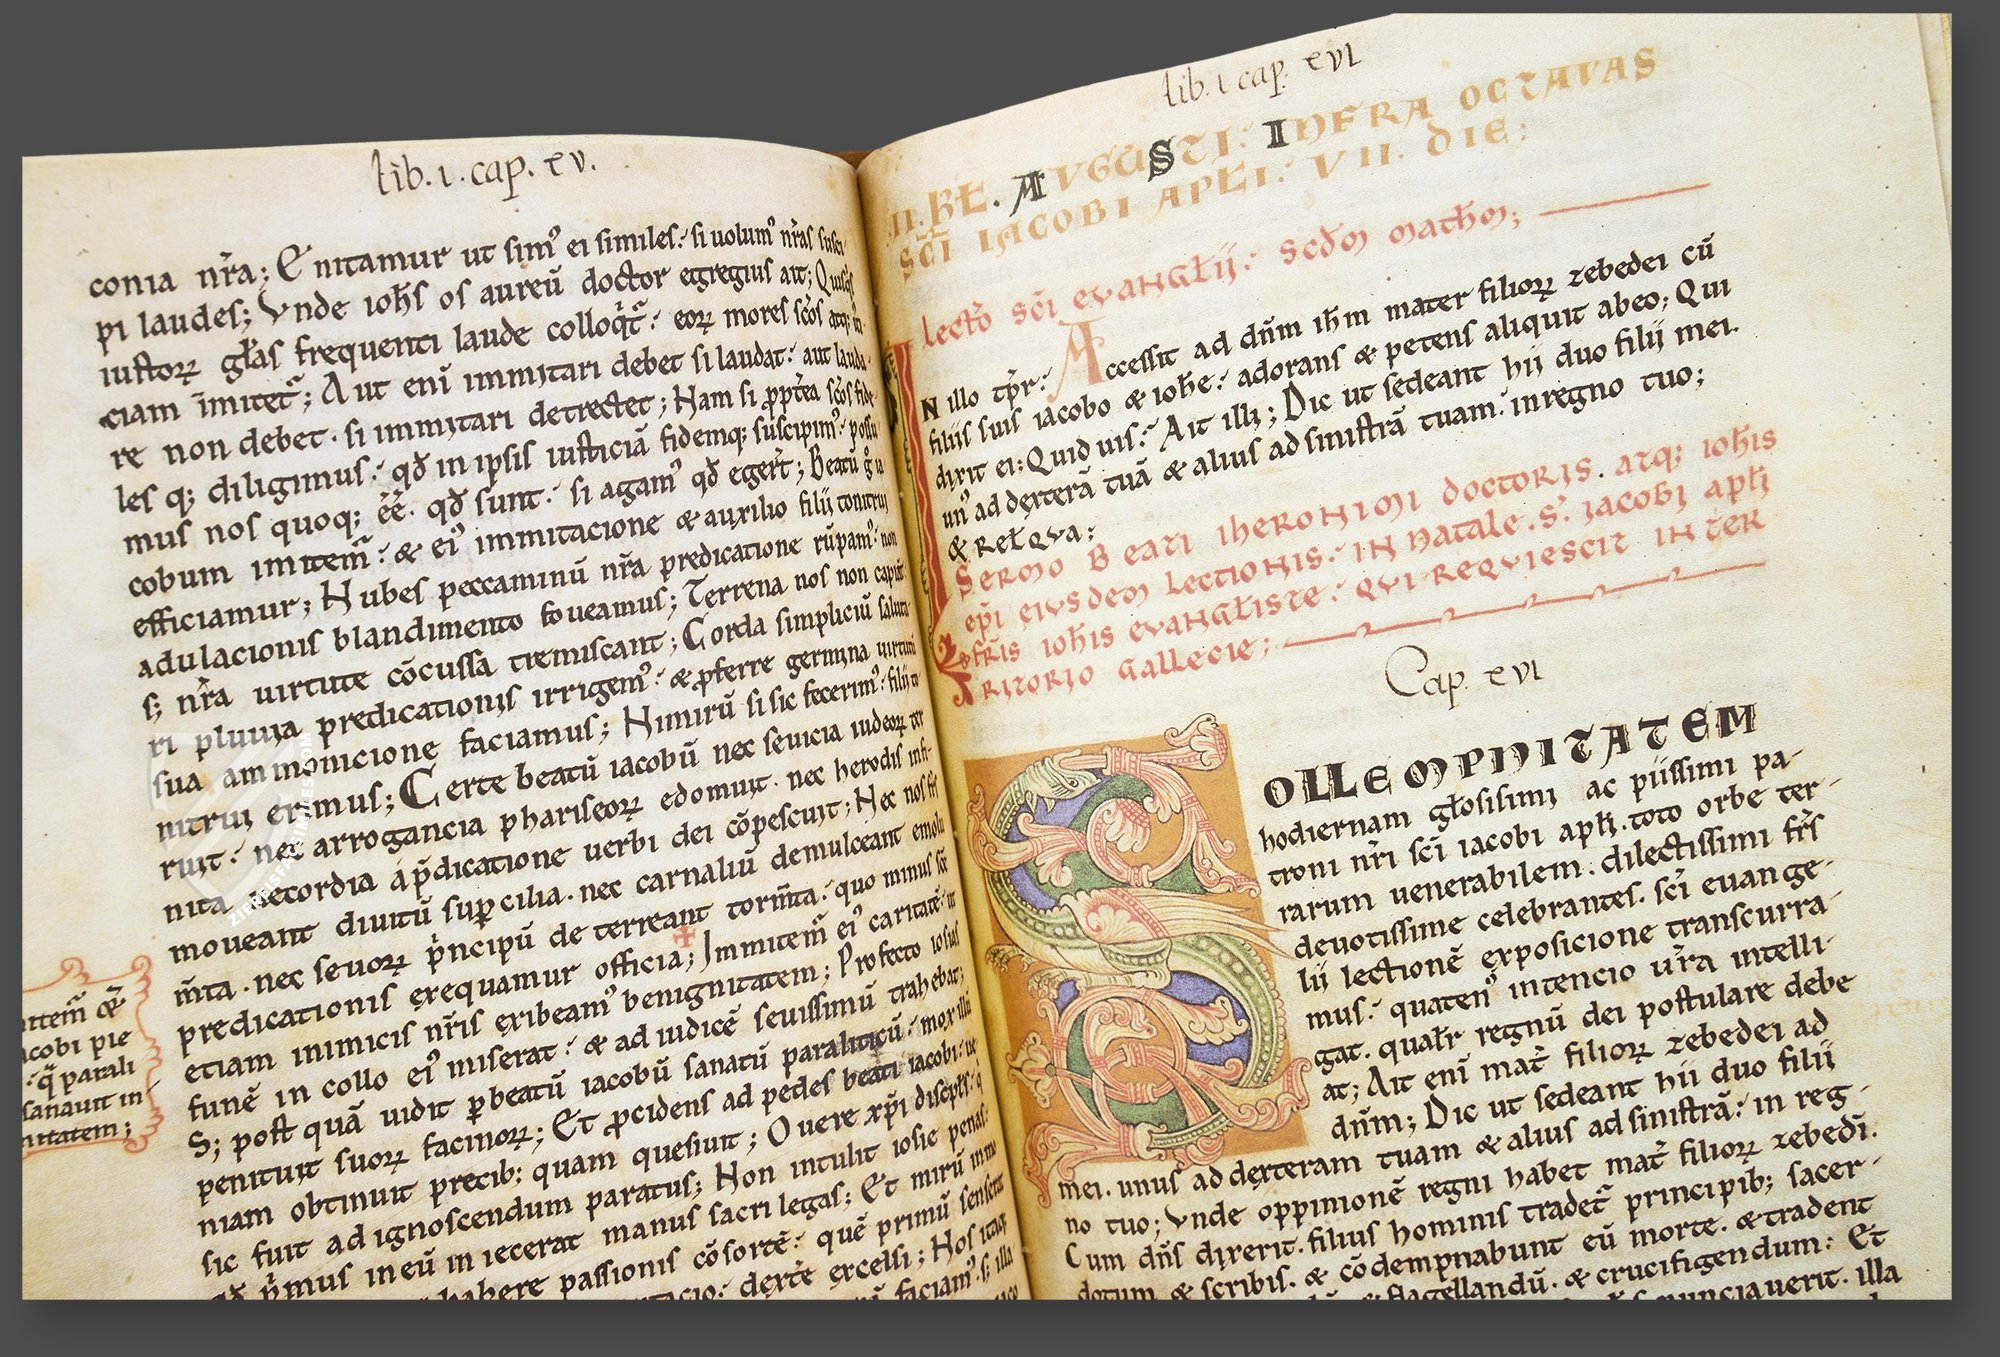 lib. i. cap. xv.
conia nr̃a; Enitamur ut sim᷒ ei similes: si uolum᷒ nr̃as susci
pi laudes; Vnde ioh̃s os aureũ doctor egregius ait; Quisq̃s
iustoꝝ gl̃as frequenti laude colloq̃t᷑: eoꝝ mores sc̃os atq;
ciam ĩmitet᷑; Aut enĩ immitari debet si laudat: aut lauda
re non debet. si immitari detrectet; Nam si ꝓpt̃ea sc̃os fide
les q; diligimus: qd̃ in ipsis iusticiã fidemq; suscipim᷒: possu
mus nos quoq; ẽẽ. qd̃ sunt: si agam᷒ qd̃ eger̃t; Beatũ g̊ ia
cobum imitem᷑: & ei᷒ immitacione & auxilio filij tonitrui
efficiamur; Nubes peccaminũ nr̃a predicatione rũpam᷒: non
adulacionis blandimento foueamus; Terrena nos non capiãt
s; nr̃a uirtute cõcussa tremiscant; Corda simpliciũ saluta
ri pluuia predicationis irrigem᷒: & ꝓferre germina uirtutũ
sua ammonicione faciamus; Nimirũ si sic fecerim᷒: filij to
nitrui erimus; Certe beatũ iacobũ nec seuicia iudeoꝝ ter
ruit: nec arrogancia phariseoꝝ edomuit. nec herodis infi
nita uecordia a p̃dicatione uerbi dei cõpescuit; Nec nos
moueant diuitũ suꝑcilia. nec carnaliũ demulceant emolu
m̃ta. nec seuoꝝ p̃ncipũ deterreant torm̃ta: quo minus
predicationis exequamur officia; Immitem᷑ ei᷒ caritatẽ:
etiam inimicis nr̃is exibeam᷒ benignitatem; Profecto iosias
funẽ in collo ei᷒ miserat: & ad iudicẽ seuissimũ trahebat;
S; post quã uidit ꝑ beatũ iacobũ sanatũ paraliticũ: mox illũ
penituit suoꝝ facinoꝝ; Et ꝓcidens ad pedes beati iacobi: ue
niam obtinuit precib; quam quesiuit; O uere xp̃i discipl̃s:
sic fuit ad ignoscendum paratus; Non intulit iosie penas:
qd̃ p̃mus in eũ iniecerat manus sacrilegas; Et mirũ inmo
habere passionis cõsortẽ: quẽ primũ senserat
dext̃e excelsi; Hos itaq;
faciam᷒. s; illa
acobi pie
q̃ parali
sanauit in
nitatem;
lib. i cap. xvi
II. KL̃. AVGVSTI: INFRA OCTAVAS
SC̃I IACOBI APL̃I: VII. DIE:
Lectio sc̃i evangl̃ij: scd̃m math̃m;
IN illo tp̃r: Accessit ad dñm ih̃m mater filioꝝ zebedei cũ
filiis suis iacobo & ioh̃e: adorans & petens aliquit ab eo; Qui
dixit ei: Quid uis: Ait illi; Dic ut sedeant hij duo filij mei.
un᷒ ad dexterã tuã & alius ad sinistrã tuam: in regno tuo;
& rel̃qva;
Sermo Beati Iheronimi doctoris. atq; ioh̃is
ep̃i eiusdem lectionis: in natale. S. Iacobi apl̃i
fr̃is ioh̃is evangl̃iste: qvi reqviescit in ter
ritorio Gallecie;
Cap. xvi
SOLLEMPNITATEM
hodiernam gl̃osissimi ac piissimi pa-
troni nr̃i sc̃i iacobi apl̃i. toto orbe ter-
rarum uenerabilem. dilectissimi fr̃s
deuotissime celebrantes. sc̃i euange-
lii lectionẽ exposicione transcurra-
mus: quaten᷒ intencio ur̃a intelli-
gat. qual̃r regnũ dei postulare debe
at; Ait enĩ mat̃ filioꝝ zebedei ad
dñm; Dic ut sedeant hii duo filij
mei. unus ad dexteram tuam & alius ad sinistrã: in reg-
no tuo; Vnde oppinionẽ regni habet mat̃ filioꝝ zebedi.
Cum dñs dixerit. filius hominis tradet᷑ principib; sacer-
dotum & scribis. & cõdempnabunt eũ morte. & tradent
& flagellandũ. & crucifigendum: Et
nunciauerit. illa